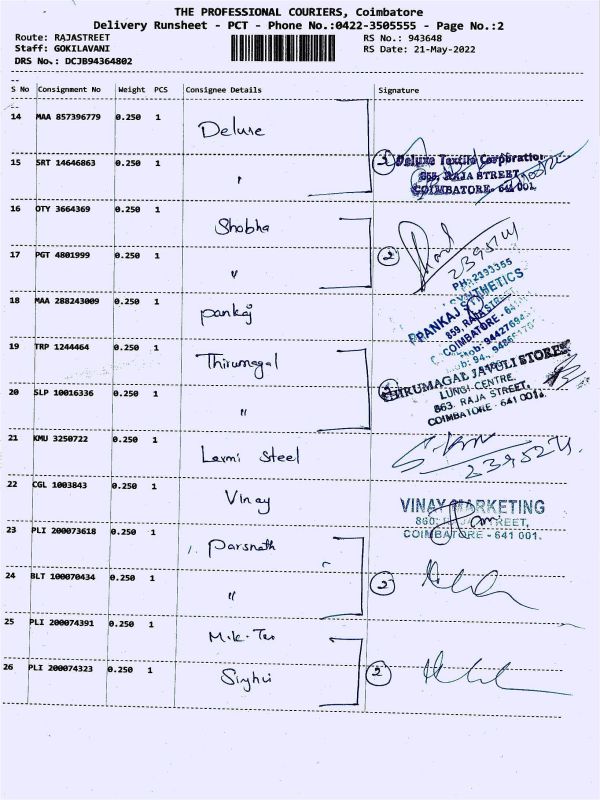 THE PROFESSIONAL COURIERS, Coimbatore
Delivery Runsheet - PCT - Phone No.:0422-3505555 - Page No.:2
Route: RAJASTREET RS No.: 943648
Staff: GOKILAVANI RS Date: 21-May-2022
DRS No.: DCJB94364802
S No Consignment No Weight PCS Consignee Details Signature
14 MAA 857396779 0.250 1 Deluxe
15 SRT 14646863 0.250 1 "
2 Deluxe Textile Corporation
855, RAJA STREET,
COIMBATORE - 641 001.
16 OTY 3664369 0.250 1 Shobha
17 PGT 4801999 0.250 1 "
2
2395214
18 MAA 288243009 0.250 1 pankaj
PH: 2393355
PANKAJ SYNTHETICS
859, RAJA STREET
COIMBATORE - 641
19 TRP 1244464 0.250 1 Thirumagal
20 SLP 10016336 0.250 1 "
THIRUMAGAL JAVULI STORES
LUNGI CENTRE,
863, RAJA STREET,
COIMBATORE - 641 001.
21 KMU 3250722 0.250 1 Laxmi Steel
22 CGL 1003843 0.250 1 Vinay
VINAY MARKETING
860, RAJA STREET,
COIMBATORE - 641 001.
23 PLI 200073618 0.250 1 Parsnath
24 BLT 100070434 0.250 1 "
2
25 PLI 200074391 0.250 1 M.K. Tex
26 PLI 200074323 0.250 1 Singhvi
2